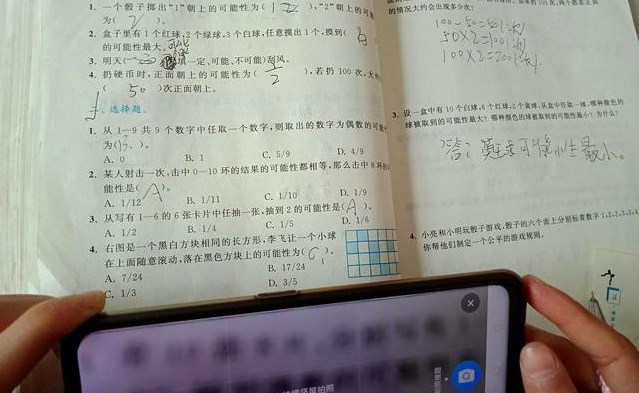 1. 一个骰子掷出“1”朝上的可能性为( 1/2 ),“2”朝上的可
为( )。
2. 盒子里有1个红球,2个绿球,3个白球,任意摸出1个,摸到(
的可能性最大。
3. 明天( 填一定、可能、不可能)刮风。
4. 扔硬币时,正面朝上的可能性为( 1/2 ),若扔 100 次,大
( 50 )次正面朝上。
、选择题。
1. 从 1—9 共 9 个数字中任取一个数字,则取出的数字为偶数的可能
为( )。
A. 0 B. 1 C. 5/9 D. 4/9
2. 某人射击一次,击中 0—10 环的结果的可能性都相等,那么击中 8 环的
能性是( A )。
A. 1/12 B. 1/11 C. 1/10 D. 1/9
3. 从写有 1—6 的 6 张卡片中任抽一张,抽到 2 的可能性是( A )。
A. 1/2 B. 1/4 C. 1/5 D. 1/6
4. 右图是一个黑白方块相同的长方形,李飞让一个小球
在上面随意滚动,落在黑色方块上的可能性为( C )。
A. 7/24 B. 17/24
C. 1/3 D. 3/5
的情况大约会出现多少次?
100-50=50(次)
50×2=100(次)
100×2=200(次)
3. 设一盒中有 10 个白球,6 个红球,2 个黄球,从盒中任取一球,哪种颜色的
球被取到的可能性最大?哪种颜色的球被取到的可能性最小?为什么?
答: 可能性最小。
4. 小亮和小明玩骰子游戏,骰子的六个面上分别标着数字 1,2,3,4
你帮他们制定一个公平的游戏规则。